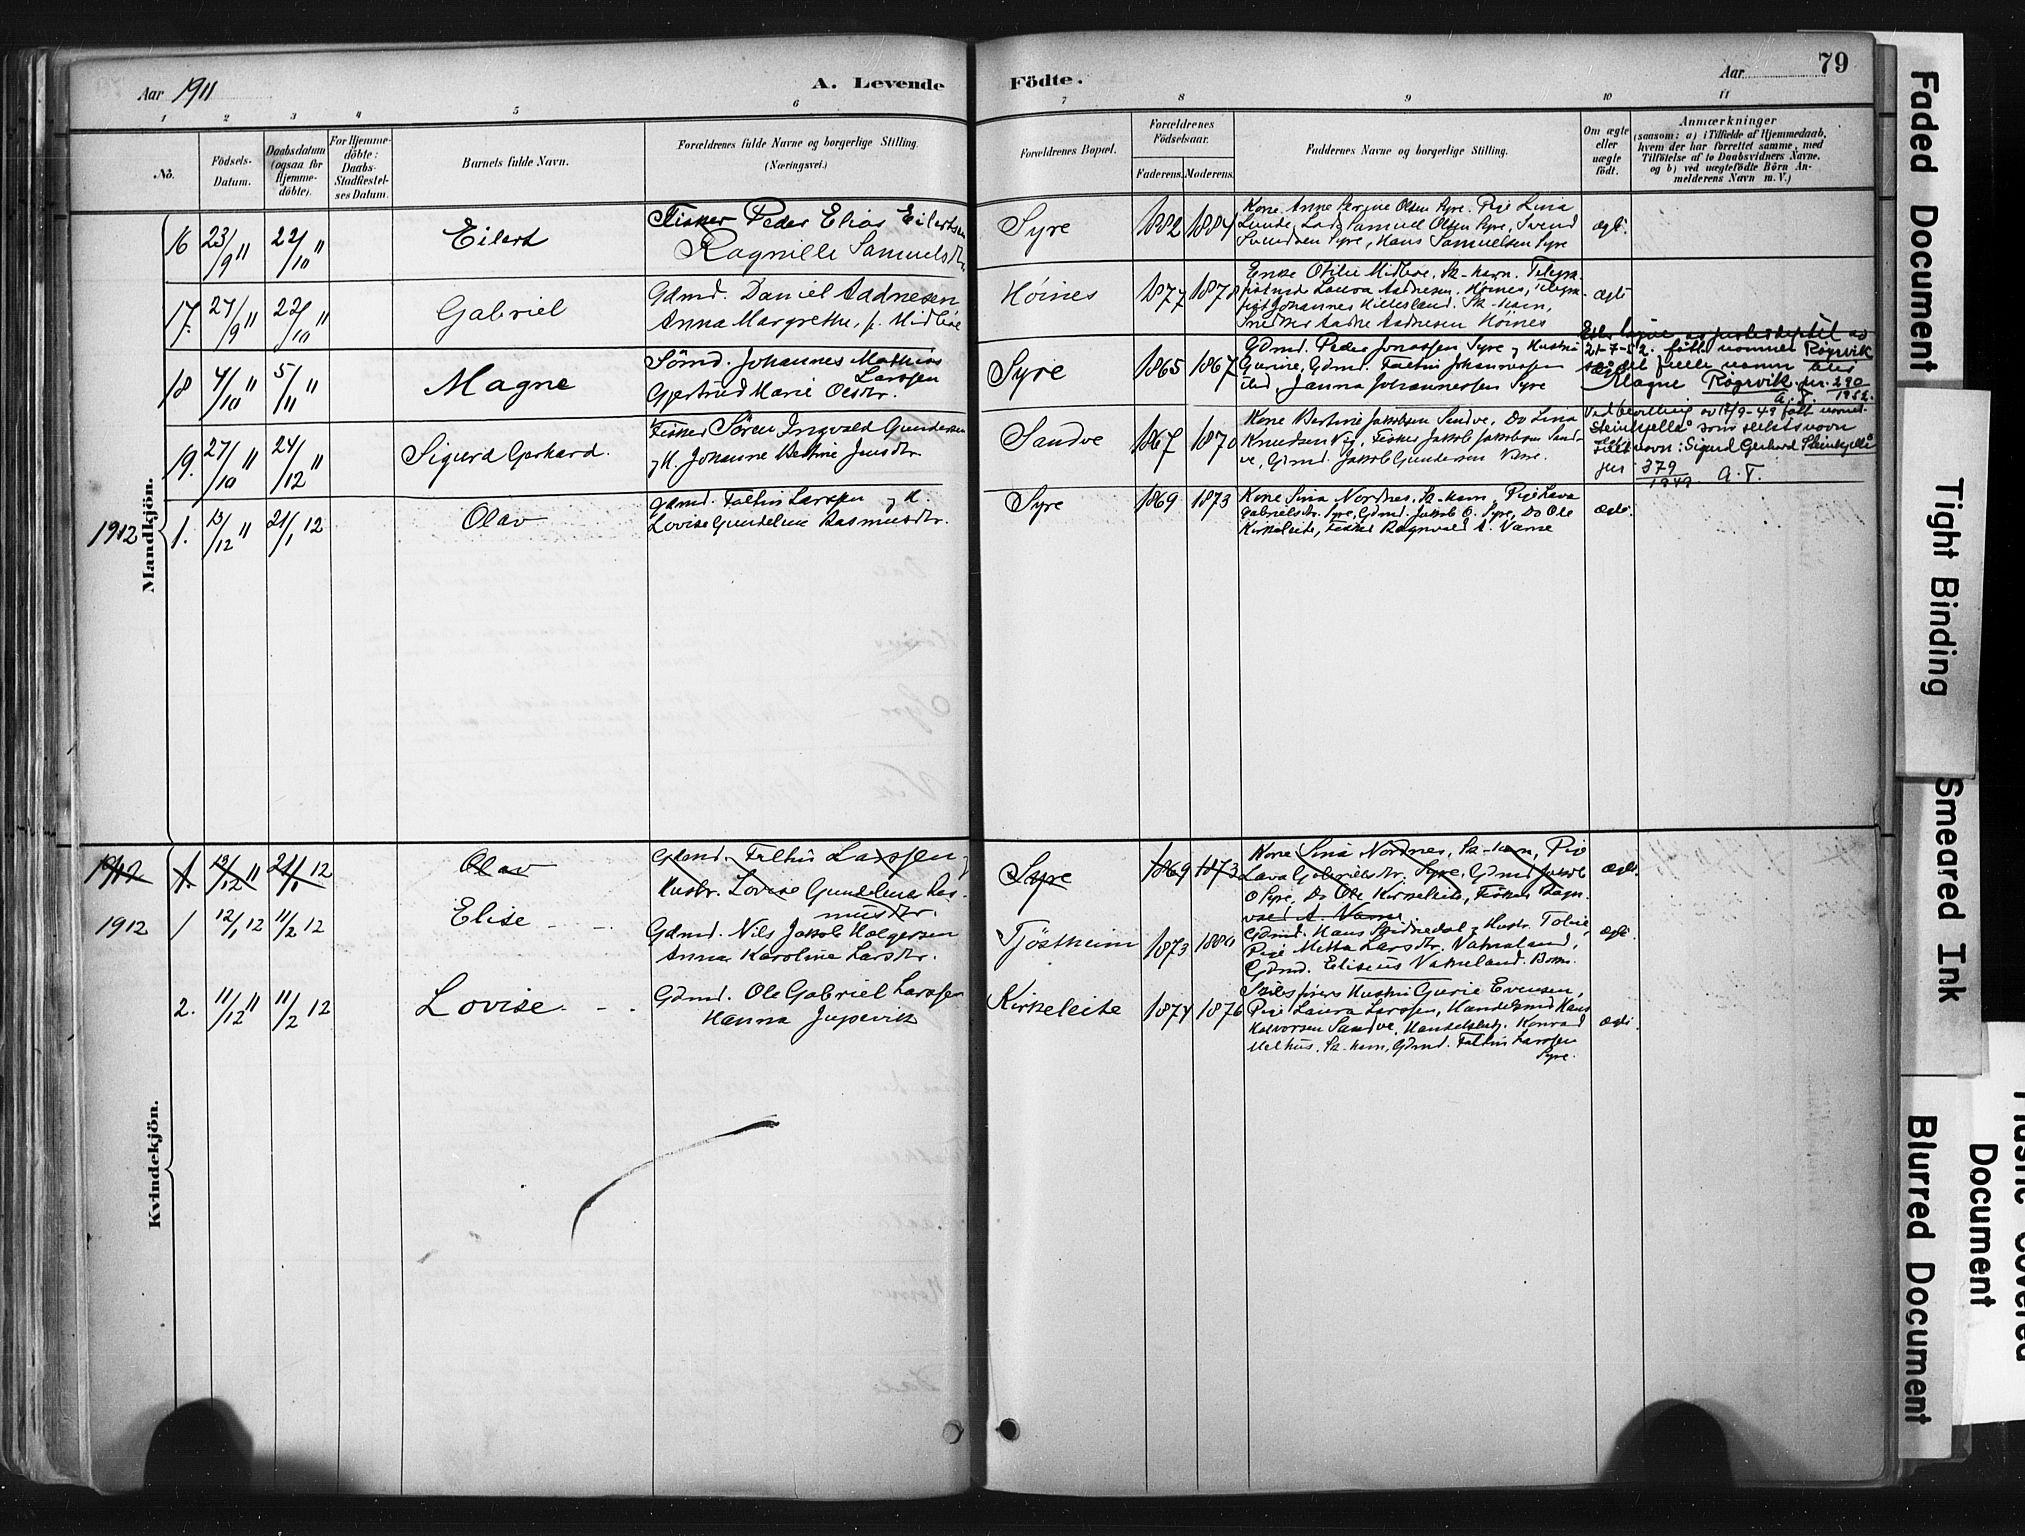 Aar 1911
A. Levende
Födte.
Aar
79
1 2 3 4 5 6 7 8 9 10 11
Nô.
Födsels-
Datum.
Daabsdatum
(ogsaa for
Hjemme-
döbte).
For Hjemme-
döbte:
Daabs-
Stadfæstel-
ses Datum.
Barnets fulde Navn.
Forældrenes fulde Navne og borgerlige Stilling.
(Næringsvei.)
Forældrenes Bopæl.
Forældrenes
Födselsaar.
Faderens.
Moderens.
Faddernes Navne og borgerlige Stilling.
Om ægte
eller
uægte
födt.
Anmærkninger
(saasom: a) i Tilfælde af Hjemmedaab,
hvem der har forrettet samme, med
Tilföielse af to Daabsvidners Navne,
og b) ved uægtefödte Börn An-
melderens Navn m. V.)
Mandkjön.
16 23/9 11 22/10 11 Eilert
Fisker Peder Elias Eilertsen
Ragnille Samuelsdtr.
Syre 1882 1884
Kone Anne Serine Olsen Syre. Pige Lina
Lunde, Lods Samuel Olsen Syre, Svend
Svendsen Syre, Hans Samuelsen Syre
ægte.
17. 27/9 11 22/10 11 Gabriel
Gdmd. Daniel Aadnesen
Anna Margrethe, f. Midböe
Höines 1877 1878
Enke Otilie Midböe, Sk-havn. Telegra-
Laura Aadnesen, Höines, Telegra-
fist Johannes Hillesland. Sk-havn,
Snedker Aadne Aadnesen Höines
ægte
18 4/10 11 5/11 11 Magne
Sömd. Johannes Mathias
Larssen
Gjertrud Marie Olsdtr.
Syre 1865 1867
Gdmd. Peder Jonassen Syre og Hustru
Gurine, Gdmd. Faltin Johannessen
ibd, Janna Johannessen Syre
21-7-52. fått navnet Røgrvik
Magne Røgrvik. jnr. 290/1952.
A.T.
19. 27/10 11 24/12 11 Sigurd Gerhard.
Fisker Sören Ingvald Gundersen
og H. Johanne Bertine Jensdtr.
Sandve 1867 1870
Kone Bertine Jakobsen Sandve, Do Lina
Knudsen Vig, Fisker Jakob Jakobsen Sand-
ve, Gdmd. Jakob Gundersen
Ved bevilling av 17/9-49 fått navnet
Steinkjellå som slektsnavn
navn: Sigurd Gerhard Steinkjellå
jnr 379/1949 A.T.
1912 1. 13/12 11 21/1 12 Olav
Gdmd. Faltin Larssen og H.
Lovise Gundeline Rasmusdtr.
Syre 1869 1873
Kone Sina Nordnes, Sk-havn, Pige Lava
Gabrielsdtr. Syre, Gdmd. Jakob O. Syre, Do Ole
Kirkeleite, Fisker Ragnvald A. Varne
ægte.
Kvindekjön.
1912 1. 13/12 11 21/1 12 Olav
Gdmd. Faltin Larssen og
Hustr. Lovise Gundeline Ras-
musdtr.
Syre 1869 1873
Kone Sina Nordnes, Sk-havn, Pige
Lava Gabrielsdtr. Syre, Gdmd Jakob
O Syre, Do Ole Kirkeleite, Fisker Ragn-
vald A. Varne
ægte.
1912 1 12/1 12 11/2 12 Elise
Gdmd. Nils Jakob Holgersen
Anna Karoline Larsdtr.
Tjöstheim 1873 1880
Gdmd. Hans og Hustr. Tobie,
Pige Metta Larsdtr. Vatneland,
Gdmd. Eliseus Vatneland. Bokn.
ægte.
2. 11/12 11 11/2 12 Lovise
Gdmd. Ole Gabriel Larssen
Hanna Jupevik
Kirkeleite 1874 1876
Skibsförers Hustru Gurie Evensen,
Pige Laura Larssen, Handelsmd Hans
Halvorsen Sandve, Handelsbetj. Konrad
Melhus, Sk-havn, Gdmd. Faltin Larssen
Syre.
ægte.
Faded Document
Tight Binding
Smeared Ink
Blurred Document
Document